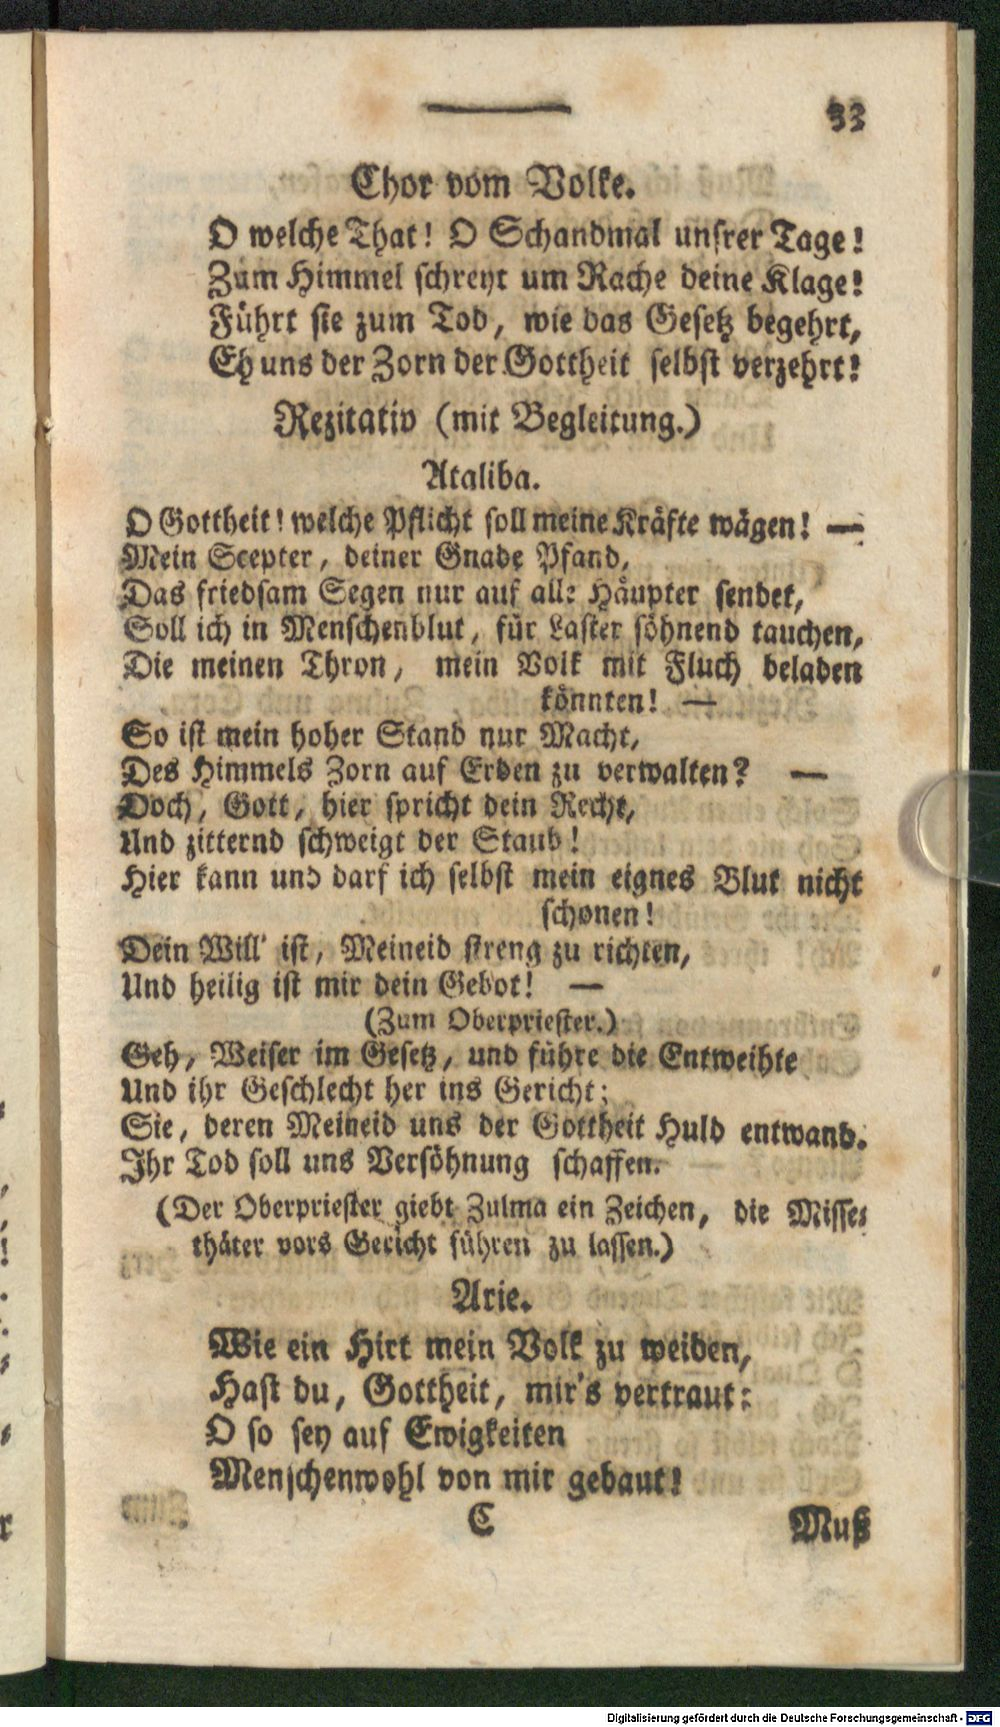 33
Chor vom Volke.
O welche That! O Schandmal unsrer Tage!
Zum Himmel schreyt um Rache deine Klage!
Führt sie zum Tod, wie das Gesetz begehrt,
Eh uns der Zorn der Gottheit selbst verzehrt!
Rezitativ (mit Begleitung.)
Ataliba.
O Gottheit! welche Pflicht soll meine Kräfte wägen! —
Mein Scepter, deiner Gnade Pfand,
Das friedsam Segen nur auf alle Häupter sendet,
Soll ich in Menschenblut, für Laster söhnend tauchen,
Die meinen Thron, mein Volk mit Fluch beladen
könnten! —
So ist mein hoher Stand nur Macht,
Des Himmels Zorn auf Erden zu verwalten? —
Doch, Gott, hier spricht dein Recht,
Und zitternd schweigt der Staub!
Hier kann und darf ich selbst mein eignes Blut nicht
schonen!
Dein Will' ist, Meineid streng zu richten,
Und heilig ist mir dein Gebot! —
(Zum Oberpriester.)
Geh, Weiser im Gesetz, und führe die Entweihte
Und ihr Geschlecht her ins Gericht;
Sie, deren Meineid uns der Gottheit Huld entwand.
Ihr Tod soll uns Versöhnung schaffen.
(Der Oberpriester giebt Zulma ein Zeichen, die Misse-
thäter vors Gericht führen zu lassen.)
Arie.
Wie ein Hirt mein Volk zu weiden,
Hast du, Gottheit, mir's vertraut:
O so sey auf Ewigkeiten
Menschenwohl von mir gebaut!
C
Muß
Digitalisierung gefördert durch die Deutsche Forschungsgemeinschaft - DFG